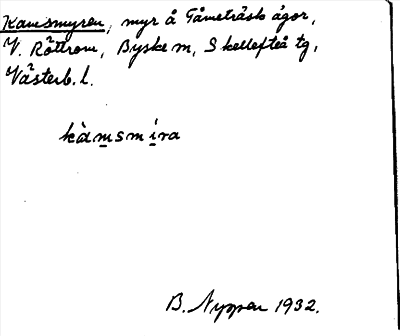 Kamsmyren, myr å Tåmeträsk ägor,
V. Byske m, Skellefteå tg,
Västerb. l.
kàmsmira
B. Nyppen 1932.